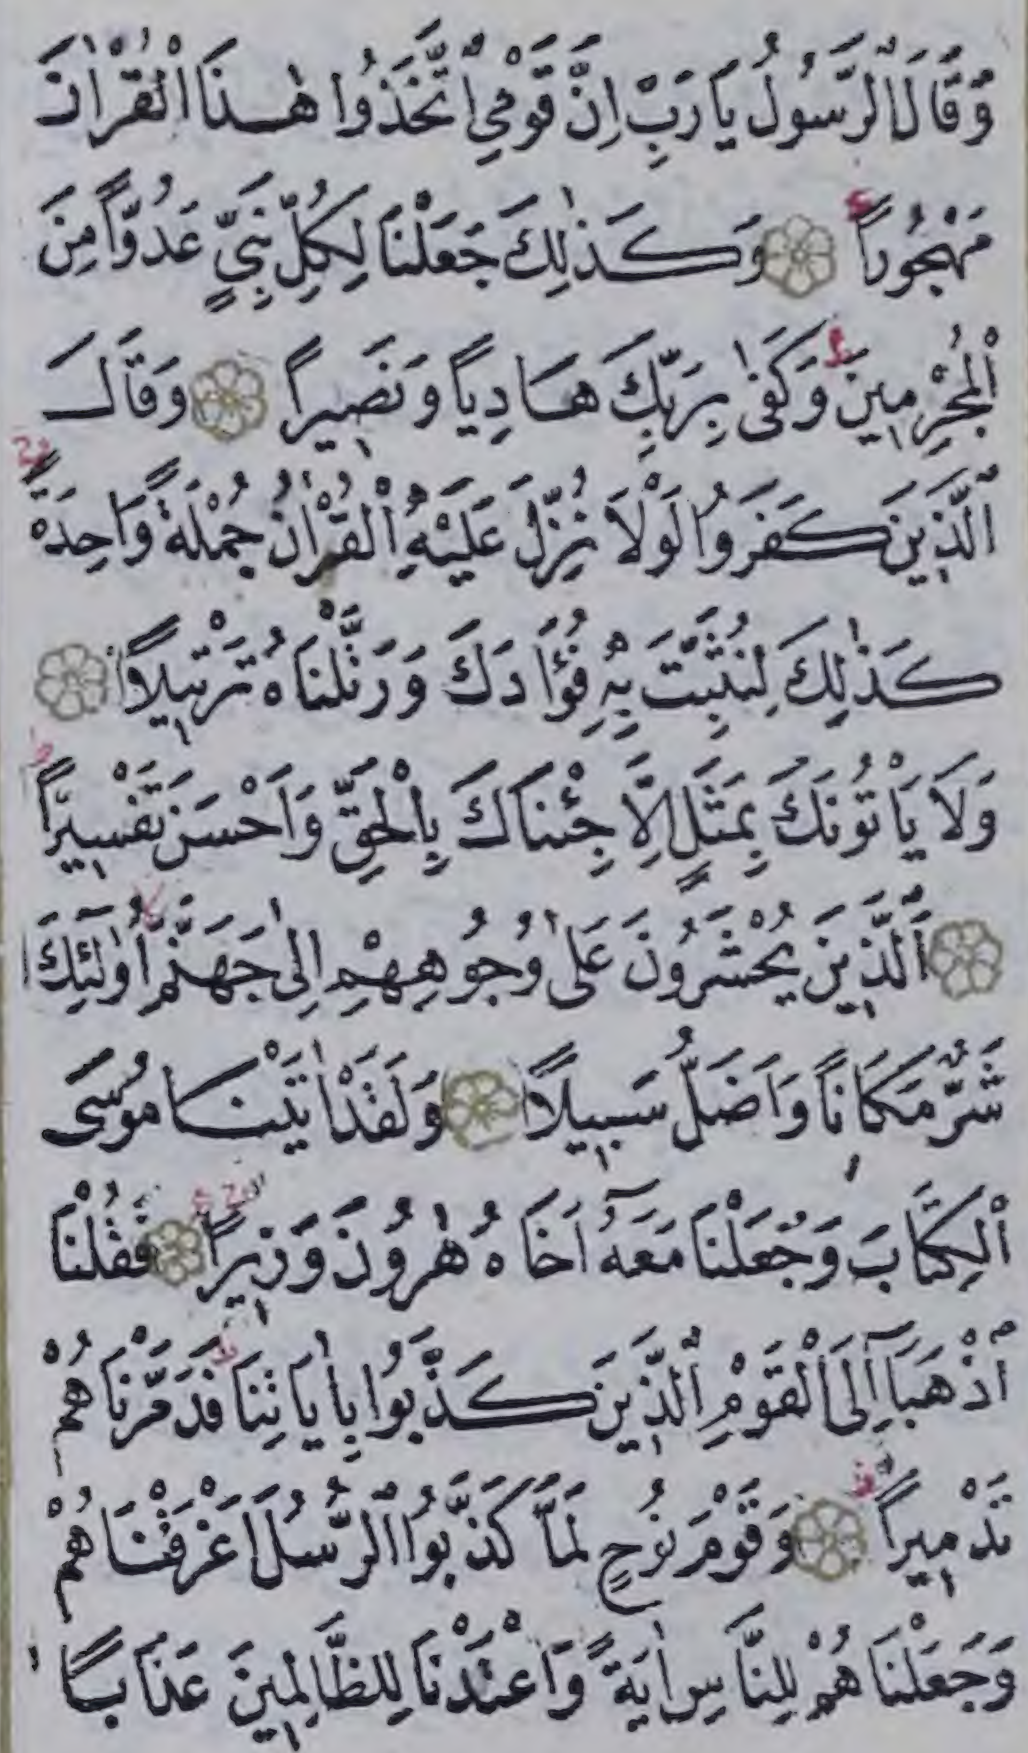 وَقَالَ الرَّسُولُ يَا رَبِّ اِنَّ قَوْمِي اتَّخَذُوا هٰذَا الْقُرْاٰنَ
مَهْجُوراً وَكَذٰلِكَ جَعَلْنَا لِكُلِّ نَبِيٍّ عَدُوّاً مِنَ
الْمُجْرِمِينَ وَكَفٰى بِرَبِّكَ هَادِياً وَنَصِيراً وَقَالَ
الَّذِينَ كَفَرُوا لَوْلَا نُزِّلَ عَلَيْهِ الْقُرْاٰنُ جُمْلَةً وَاحِدَةً
كَذٰلِكَ لِنُثَبِّتَ بِهِ فُؤَادَكَ وَرَتَّلْنَاهُ تَرْتِيلاً
وَلَا يَأْتُونَكَ بِمَثَلٍ اِلَّا جِئْنَاكَ بِالْحَقِّ وَاَحْسَنَ تَفْسِيراً
اَلَّذِينَ يُحْشَرُونَ عَلٰى وُجُوهِهِمْ اِلٰى جَهَنَّمَ اُولٰئِكَ
شَرٌّ مَكَاناً وَاَضَلُّ سَبِيلاً وَلَقَدْ اٰتَيْنَا مُوسَى
الْكِتَابَ وَجَعَلْنَا مَعَهُ اَخَاهُ هٰرُونَ وَزِيراً فَقُلْنَا
اذْهَبَا اِلَى الْقَوْمِ الَّذِينَ كَذَّبُوا بِاٰيَاتِنَا فَدَمَّرْنَاهُمْ
تَدْمِيراً وَقَوْمَ نُوحٍ لَمَّا كَذَّبُوا الرُّسُلَ اَغْرَقْنَاهُمْ
وَجَعَلْنَاهُمْ لِلنَّاسِ اٰيَةً وَاَعْتَدْنَا لِلظَّالِمِينَ عَذَاباً